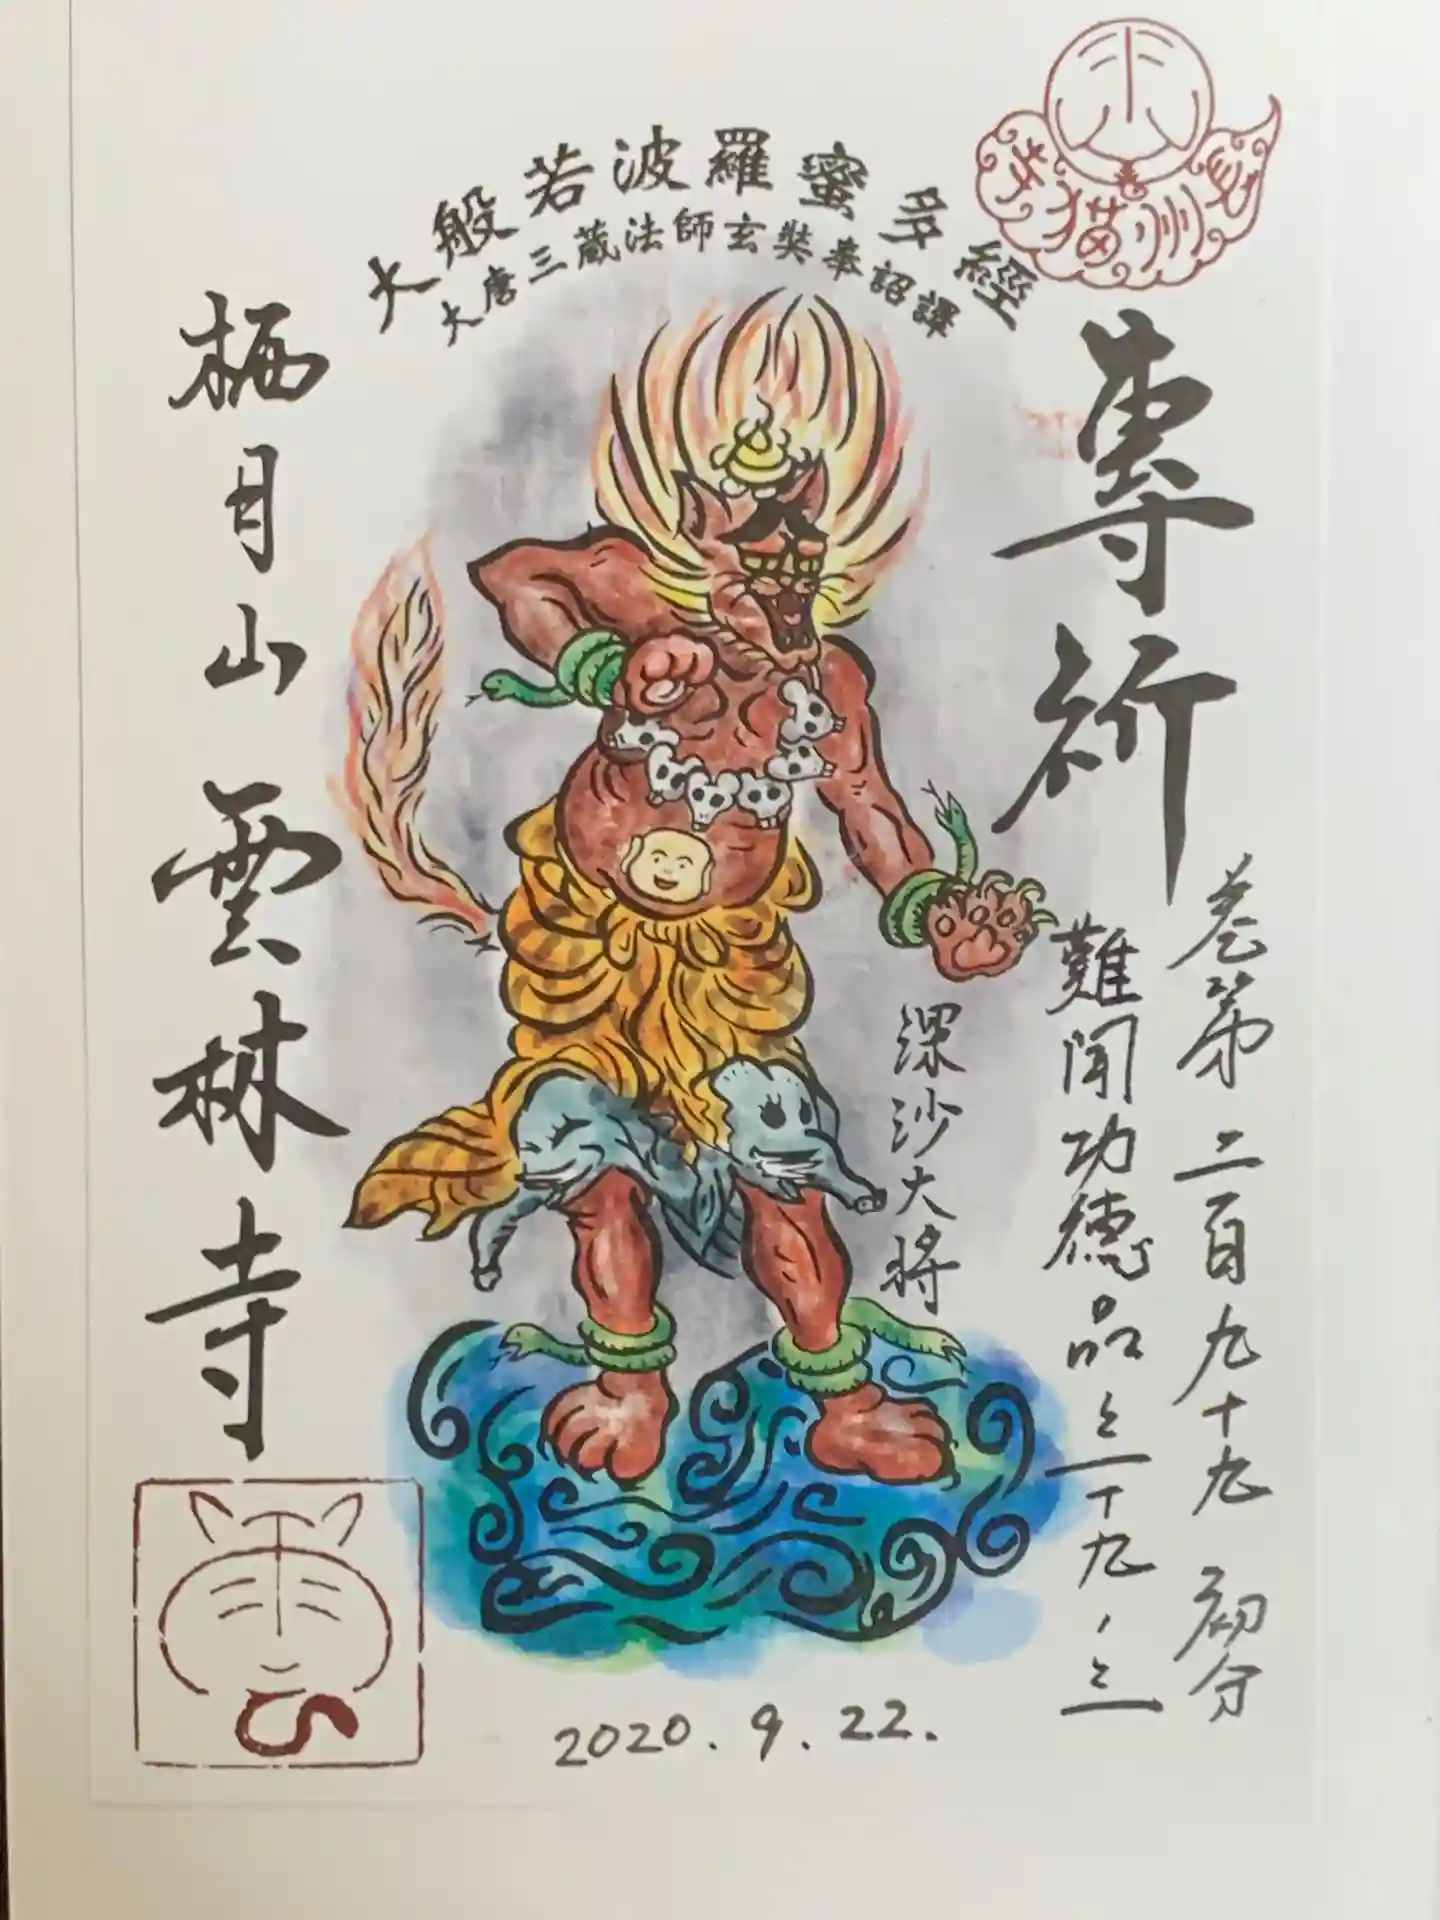 大般若波羅蜜多經
大唐三蔵法師玄奘奉詔譯
専祈
巻第二百九十九 初分
難聞功徳品之三十九ノ三
深沙大将
栖月山 雲林寺
2020.9.22.